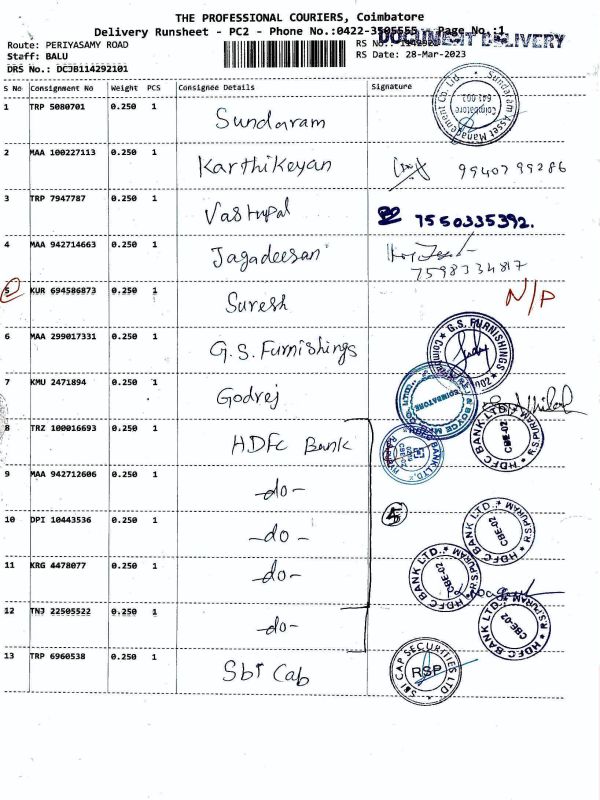 THE PROFESSIONAL COURIERS, Coimbatore
Delivery Runsheet - PC2 - Phone No.:0422-3505555 Page No.:1
DOCUMENT DELIVERY
Route: PERIYASAMY ROAD
RS No.:
Staff: BALU
RS Date: 28-Mar-2023
DRS No.: DCJB114292101
S No Consignment No Weight PCS Consignee Details Signature
1 TRP 5080701 0.250 1 Sundaram
Sundaram Asset Management Co. Ltd. Coimbatore 641 002
2 MAA 100227113 0.250 1 Karthikeyan 9940799286
3 TRP 7947787 0.250 1 Vastupal 7550335392.
4 MAA 942714663 0.250 1 Jagadeesan
7598334817
5 KUR 694586873 0.250 1 Suresh N/P
6 MAA 299017331 0.250 1 G.S. Furnishings
G.S. FURNISHINGS
7 KMU 2471894 0.250 1 Godrej
& BOYCE COIMBATORE
8 TRZ 100016693 0.250 1 HDFC Bank
HDFC BANK LTD.
HDFC BANK LTD. R.S.PURAM CBE-02
9 MAA 942712606 0.250 1 -do-
10 DPI 10443536 0.250 1 -do-
5
HDFC BANK LTD. R.S.PURAM CBE-02
11 KRG 4478077 0.250 1 -do-
HDFC BANK LTD. R.S.PURAM CBE-02
12 TNJ 22505522 0.250 1 -do-
HDFC BANK LTD. R.S.PURAM CBE-02
13 TRP 6960538 0.250 1 Sbi Cab
SBI CAP SECURITIES LTD RSP